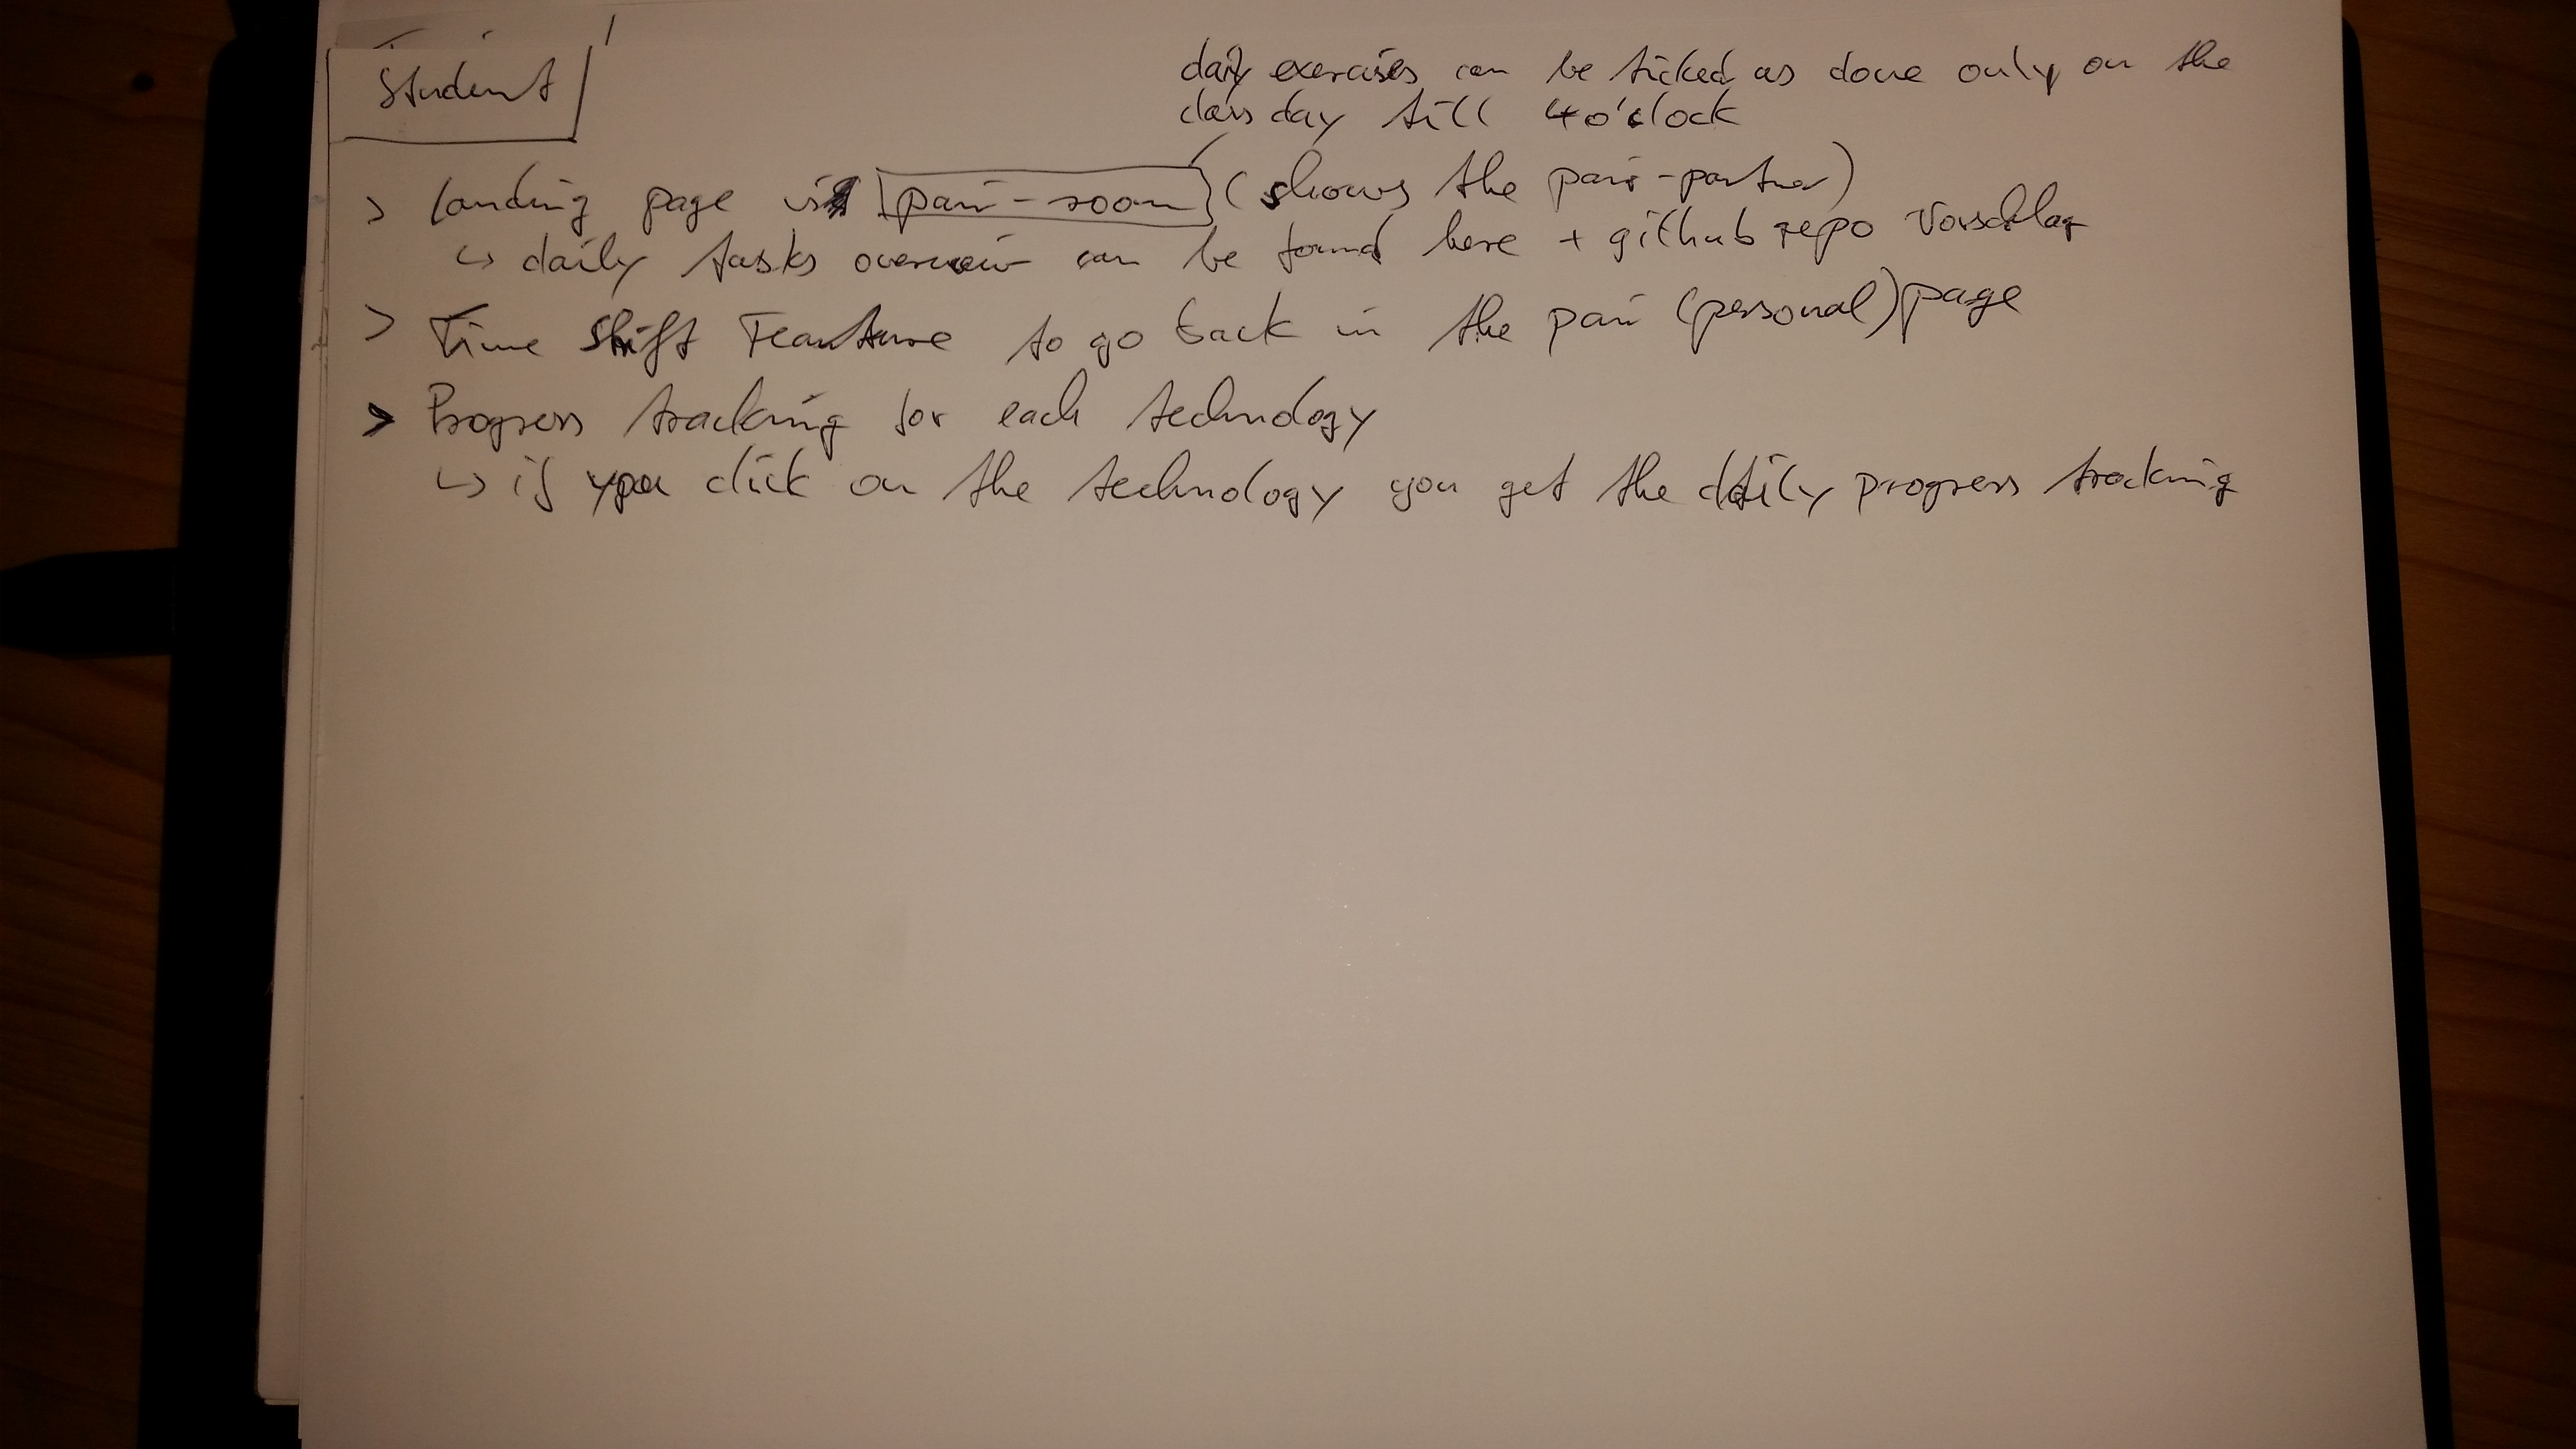 Student
daily exercises can be ticked as done only on the
class day till 4 o'clock
> landing page is pair-room (shows the pair-partner)
↳ daily tasks overview can be found here + github repo Vorschlag
> Time Shift Feature to go back in the pair (personal) page
> Progress tracking for each technology
↳ if you click on the technology you get the daily progress tracking